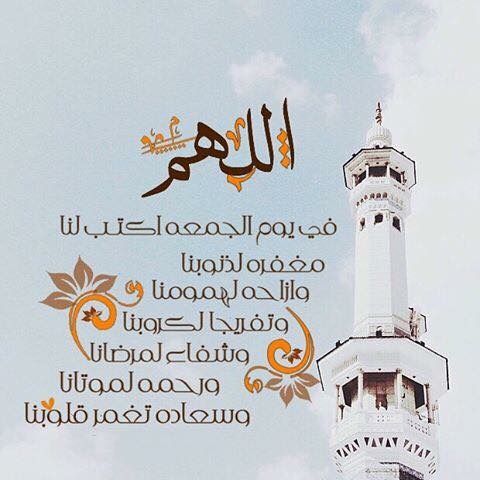 اللهم
في يوم الجمعه اكتب لنا
مغفره لذنوبنا
وازاحه لهمومنا
وتفريجا لكروبنا
وشفاء لمرضانا
ورحمه لموتانا
وسعاده تغمر قلوبنا